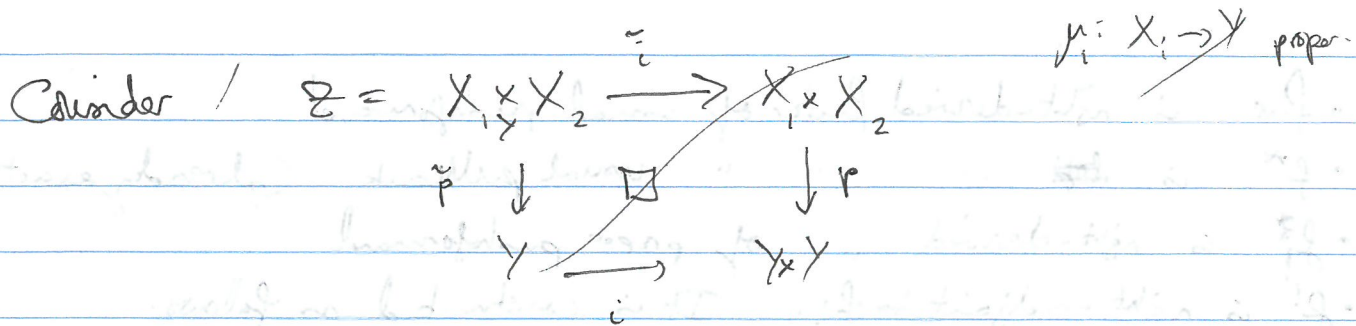 μ₁: X₁ → Y proper.
Consider / Z = X₁ ×_Y X₂ ĩ ⟶ X₁ × X₂
p̃ ↓ □ ↓ p
Y ⟶ Y×Y
i